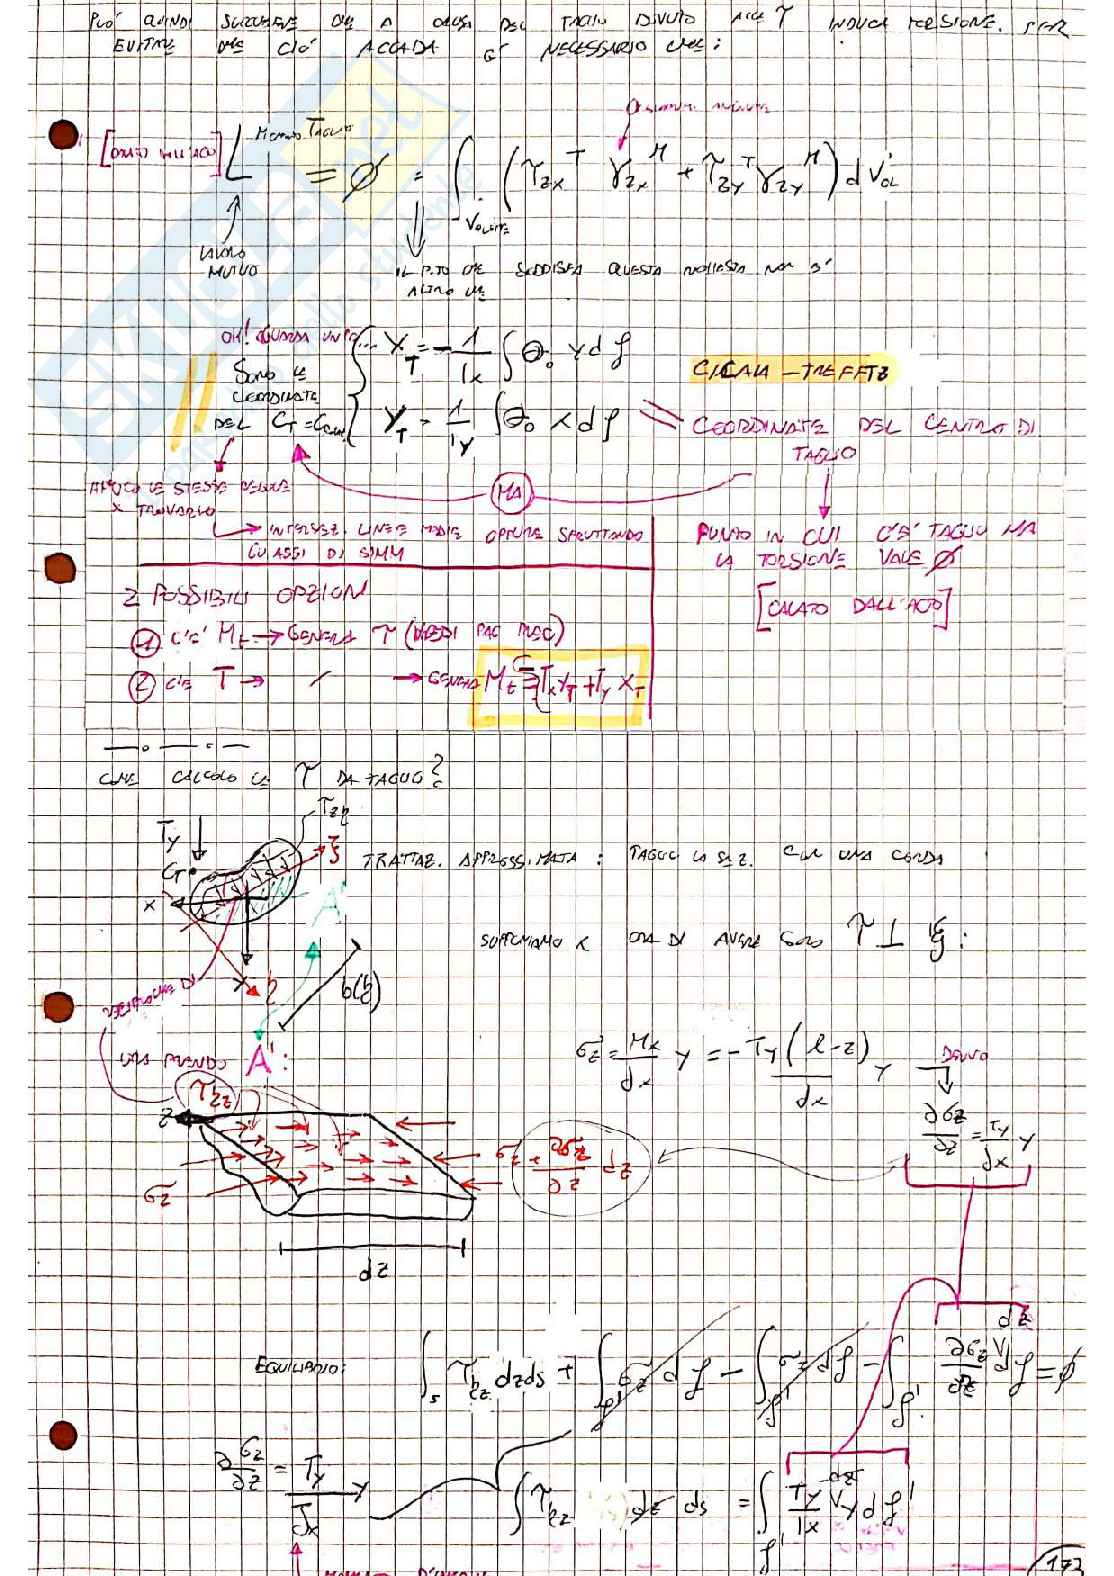 PUÒ QUINDI SUCCEDERE CHE A CAUSA DEL TAGLIO DOVUTO ALLE τ INDUCA TORSIONE. PER
EVITARE CHE CIÒ ACCADA È NECESSARIO CHE:
MOMENTO TAGLIO
L = ∅ = ∫ (τzx^T γzx^M + τzy^T γzy^M) d Vol
VOLUME
LAVORO
MUTUO
IL P.TO CHE SODDISFA QUESTA RICHIESTA NON È
ALTRO CHE
OH! GUARDA UN PO'...
SONO LE
COORDINATE
DEL CT = Ccin
XT = - 1/Ix ∫ Θ0 y dS
YT = 1/Iy ∫ Θ0 x dS
CICALA - TREFFTZ
COORDINATE DEL CENTRO DI
TAGLIO
MA
APPLICO LE STESSE REGOLE
X TROVARLO
INTERSEZ. LINEE MEDIE OPPURE SFRUTTANDO
GLI ASSI DI SIMM
PUNTO IN CUI C'È TAGLIO MA
LA TORSIONE VALE ∅
2 POSSIBILI OPZIONI
① C'È Mt → GENERA τ (VEDI PAG PREC)
② C'È T → / → GENERA Mt = Tx yT + Ty xT
COME CALCOLO LE τ DA TAGLIO?
Ty
τzη
ξ
G
x
A'
y
η
b(ξ)
TRATTAZ. APPROSSIMATA: TAGLIO LA SEZ. CON UNA CORDA
SUPPONIAMO X ORA DI AVERE SOLO τ ⊥ ξ:
ORA PRENDO A':
σz = Mx/Jx y = - Ty (l-z)/Jx y
∂σz/∂z = Ty/Jx y
τηz
z
σz
σz + ∂σz/∂z dz
dz
EQUILIBRIO: ∫s τηz dz ds + ∫S' σz dS - ∫S' σz dS - ∫S' ∂σz/∂z dz dS = ∅
∂σz/∂z = Ty/Jx y
∫ τηz dz ds = ∫S' Ty/Ix y dz dS'
173